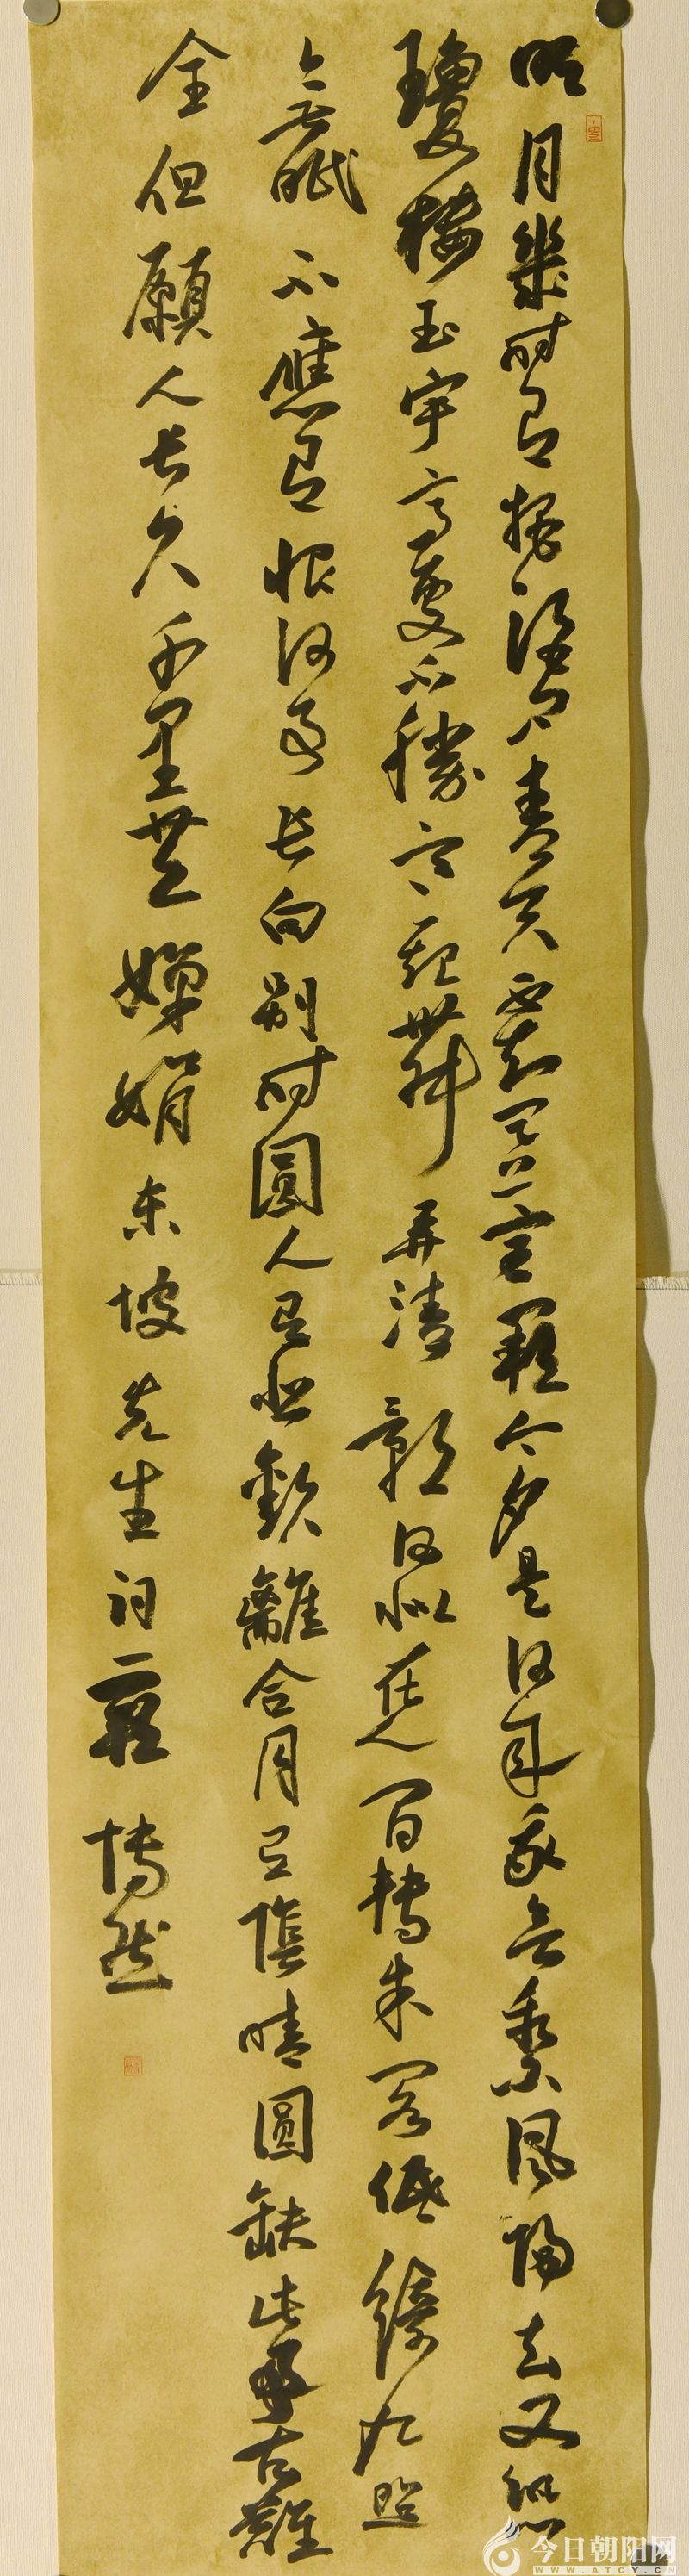 明月幾时有把酒问青天不知天上宫闕今夕是何年我欲乘風歸去又恐
瓊樓玉宇高處不勝寒起舞弄清影何似在人间轉朱阁低绮户照
無眠不應有恨何事长向别时圓人有悲歡離合月有陰晴圓缺此事古難
全但願人长久千里共嬋娟东坡先生词一闕博然
今日朝阳网
WWW.ATCY.CN